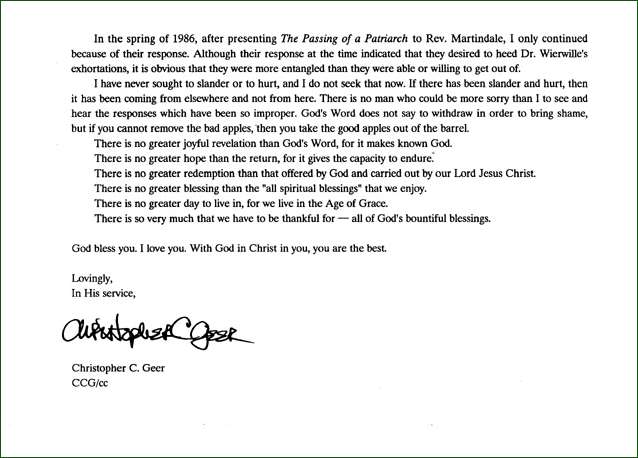 In the spring of 1986, after presenting The Passing of a Patriarch to Rev. Martindale, I only continued
because of their response. Although their response at the time indicated that they desired to heed Dr. Wierwille's
exhortations, it is obvious that they were more entangled than they were able or willing to get out of.
I have never sought to slander or to hurt, and I do not seek that now. If there has been slander and hurt, then
it has been coming from elsewhere and not from here. There is no man who could be more sorry than I to see and
hear the responses which have been so improper. God's Word does not say to withdraw in order to bring shame,
but if you cannot remove the bad apples, then you take the good apples out of the barrel.
There is no greater joyful revelation than God's Word, for it makes known God.
There is no greater hope than the return, for it gives the capacity to endure.
There is no greater redemption than that offered by God and carried out by our Lord Jesus Christ.
There is no greater blessing than the "all spiritual blessings" that we enjoy.
There is no greater day to live in, for we live in the Age of Grace.
There is so very much that we have to be thankful for — all of God's bountiful blessings.
God bless you. I love you. With God in Christ in you, you are the best.
Lovingly,
In His service,
Christopher C Geer
Christopher C. Geer
CCG/cc